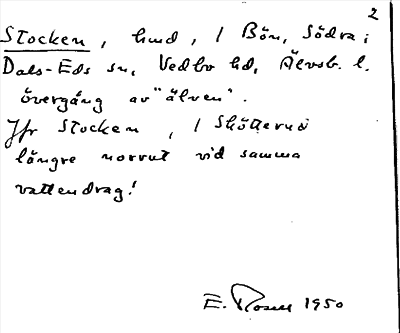 2
Stocken, hmd, / Bön, Södra i
Dals-Eds sn, Vedbo hd, Älvsb. l.
övergång av "älven".
Jfr Stocken, / Skötterud
längre norrut vid samma
vattendrag!
E. Rosell 1950